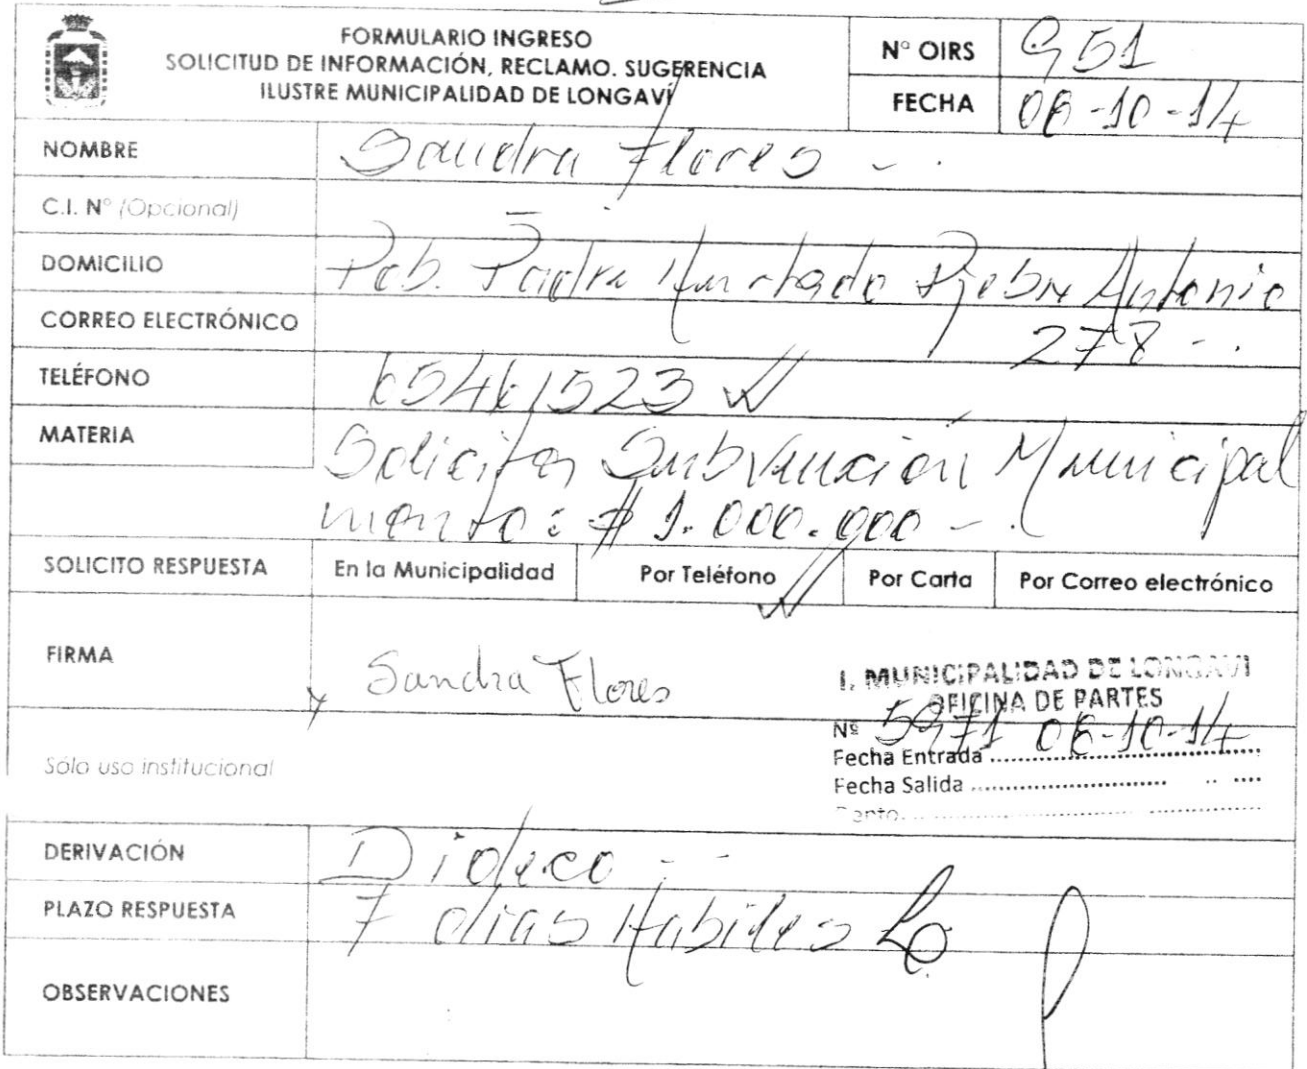 FORMULARIO INGRESO
SOLICITUD DE INFORMACIÓN, RECLAMO. SUGERENCIA
ILUSTRE MUNICIPALIDAD DE LONGAVÍ
N° OIRS 951
FECHA 06-10-14
NOMBRE Sandra Flores -.
C.I. N° (Opcional) -
DOMICILIO Pob. Padre Hurtado Pje Antonio
CORREO ELECTRÓNICO 278 -.
TELÉFONO 65461523
MATERIA Solicita Subvención Municipal
monto: $ 1.000.000 -.
SOLICITO RESPUESTA En la Municipalidad Por Teléfono Por Carta Por Correo electrónico
FIRMA Sandra Flores
I. MUNICIPALIDAD DE LONGAVI
OFICINA DE PARTES
Nº 5971 06-10-14
Fecha Entrada
Sólo uso institucional
Fecha Salida
DERIVACIÓN Dideco -.-
PLAZO RESPUESTA 7 días Habiles
OBSERVACIONES